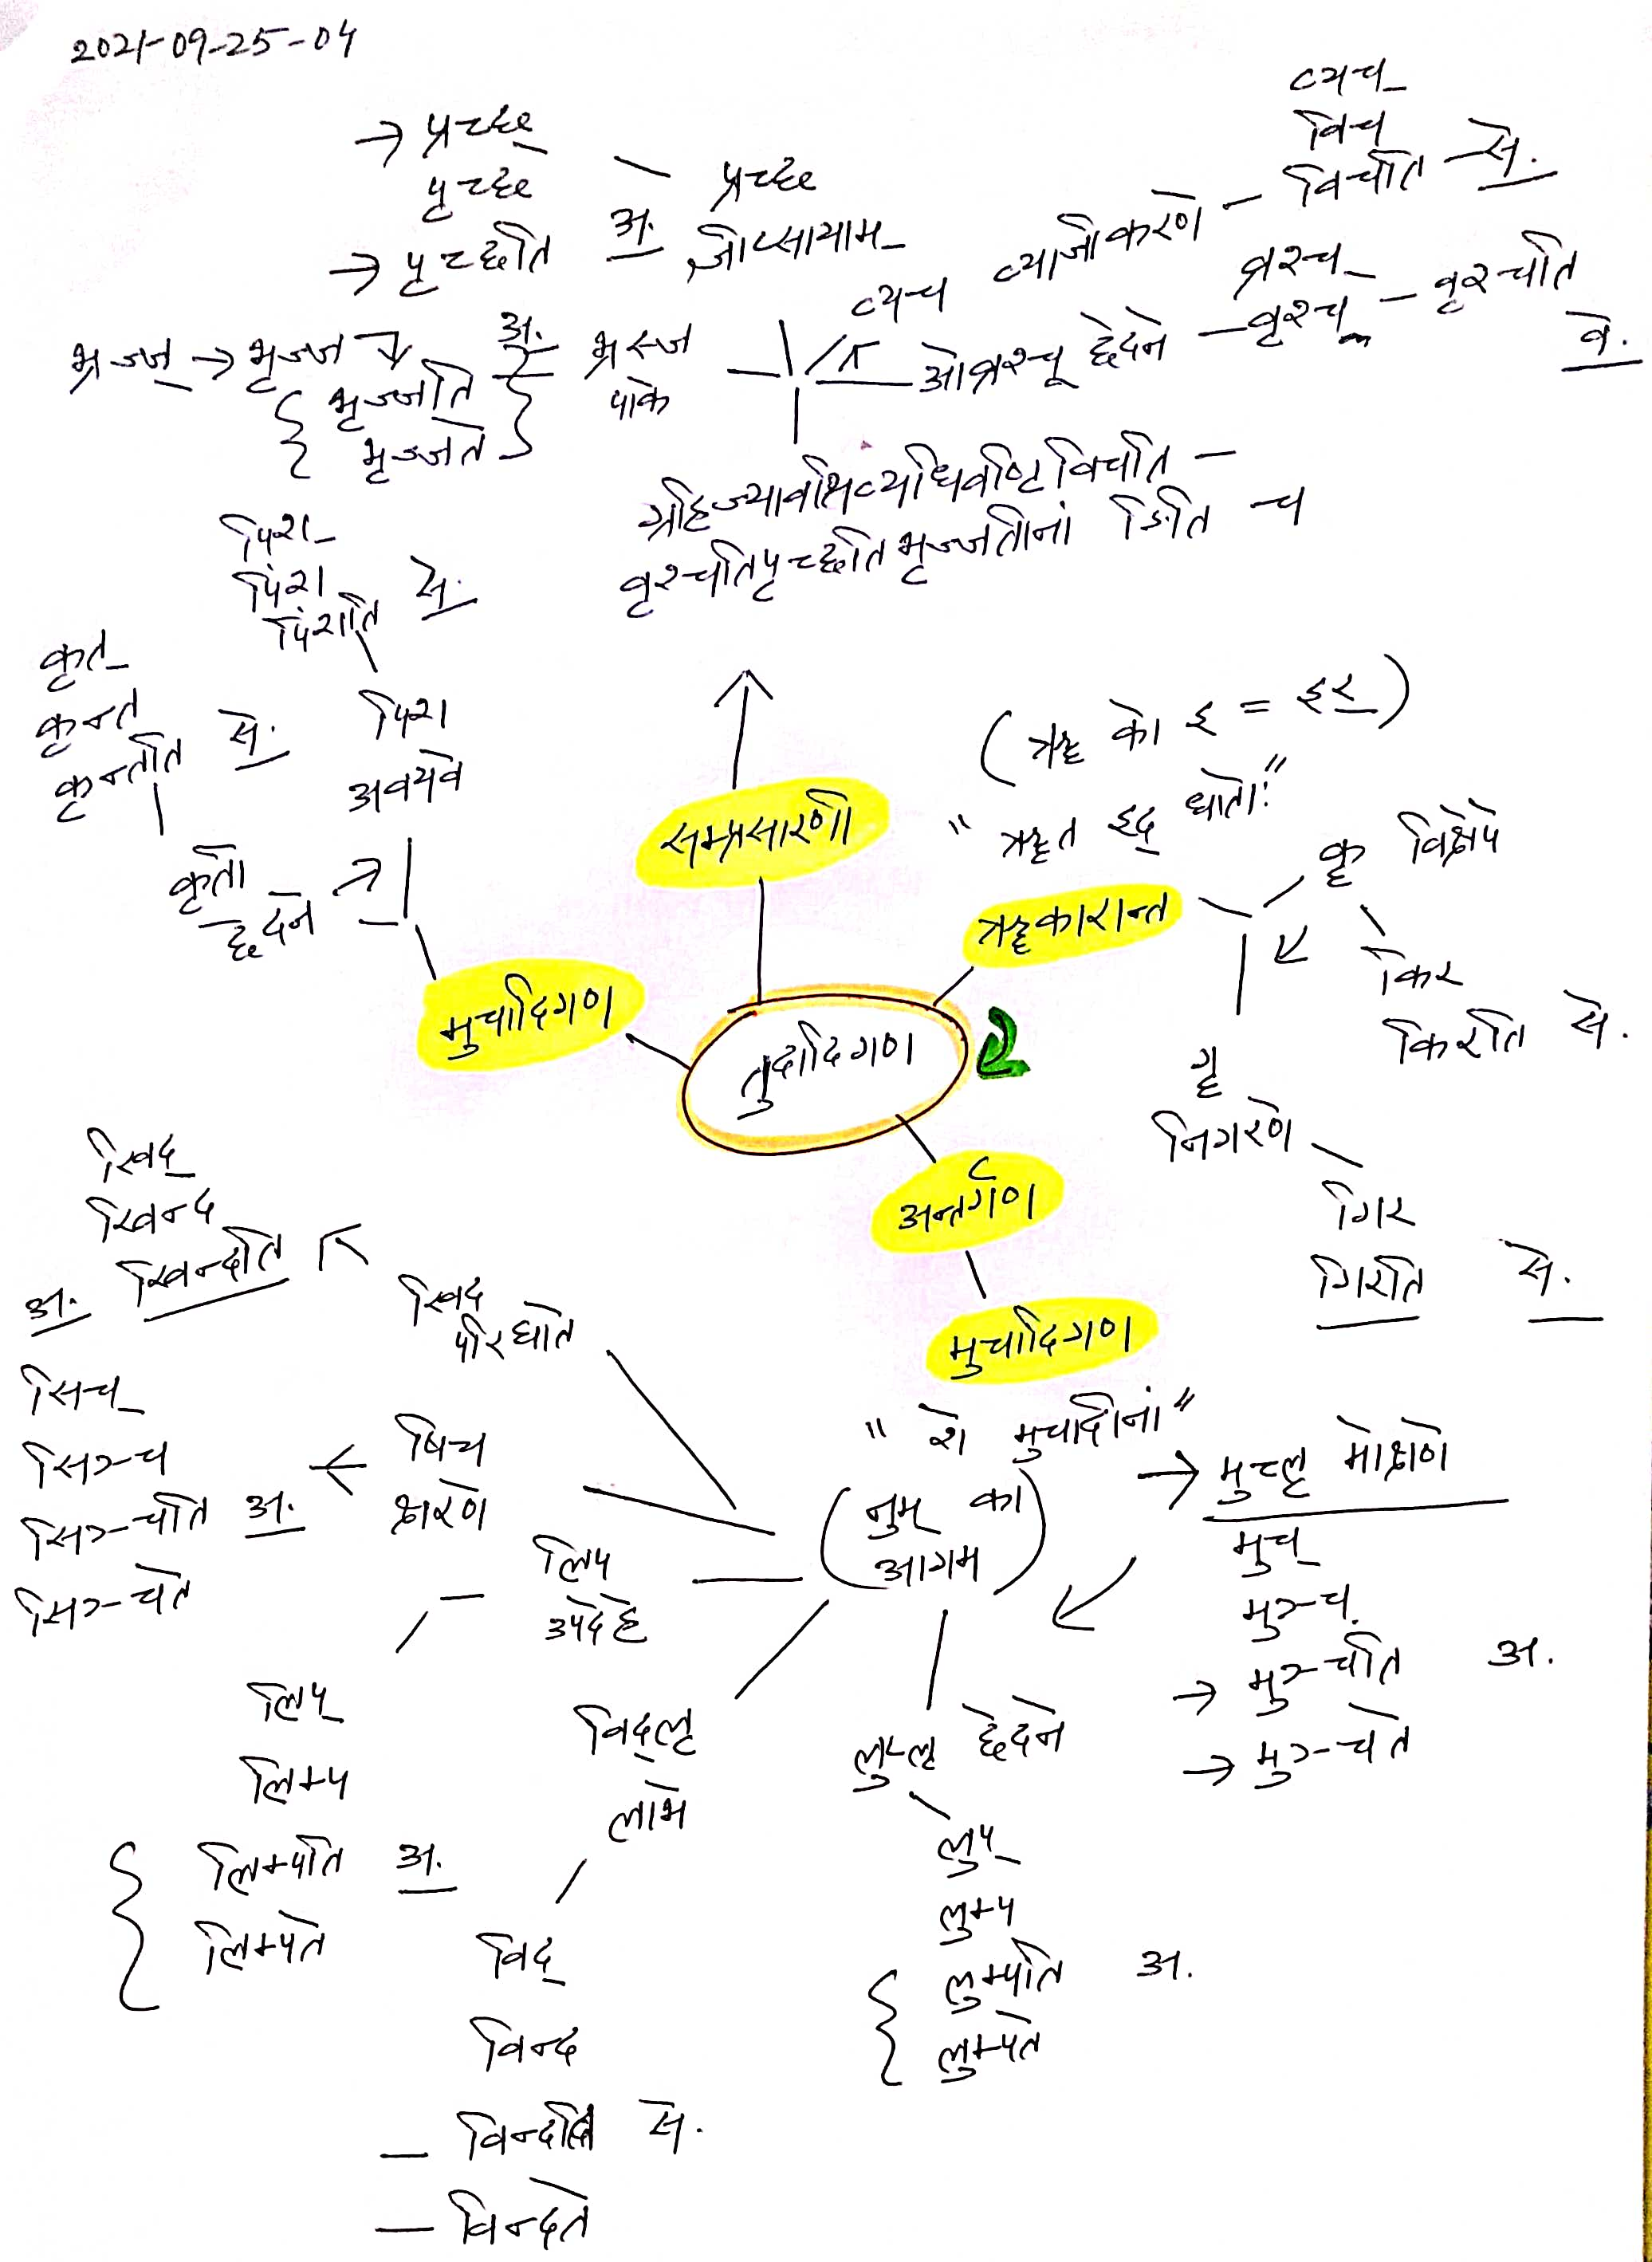 2021-09-25-04
→ प्रच्छ्
पृच्छ
→ पृच्छति अ.
प्रच्छ
ज्ञीप्सायाम्
व्यच्
विच
विचति से.
व्यच व्याजीकरणे
व्रश्च्
ओव्रश्चू छेदने - वृश्च - वृश्चति
वे.
भ्रज्ज् → भृज्ज
भृज्जति
भृज्जते
अ.
भ्रस्ज
पाके
ग्रहिज्यावयिव्यधिवष्टिविचति -
वृश्चतिपृच्छतिभृज्जतीनां ङिति च
पिश्
पिंश
पिंशति से.
पिश
अवयवे
कृत्
कृन्त
कृन्तति से.
कृती
छेदने
सम्प्रसारणी
(ॠ को इ = इर्)
"ॠत इद् धातोः"
ॠकारान्त
कॄ विक्षेपे
किर
किरति से.
गॄ
निगरणे
गिर
गिरति से.
मुचादिगण
तुदादिगण
2
अन्तर्गण
मुचादिगण
"शे मुचादीनां"
(नुम् का
आगम)
खिद्
खिन्द
खिन्दति
अ.
खिद
परिघाते
सिच्
सिञ्च
सिञ्चति अ.
सिञ्चते
षिच
क्षरणे
लिप
उपदेहे
लिप्
लिम्प
लिम्पति अ.
लिम्पते
विद्लृ
लाभे
विद्
विन्द
- विन्दति से.
- विन्दते
लुप्लृ छेदने
लुप्
लुम्प
लुम्पति अ.
लुम्पते
→ मुच्लृ मोक्षणे
मुच्
मुञ्च
→ मुञ्चति अ.
→ मुञ्चते